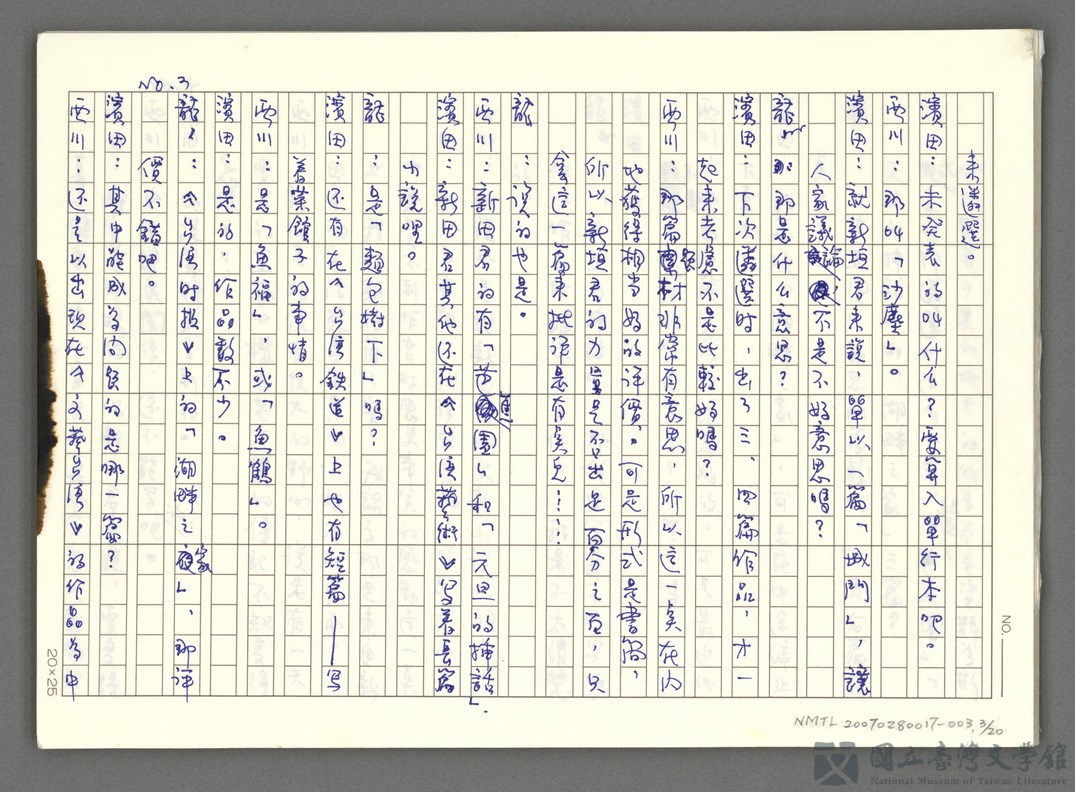 来遴選。
濱田：未發表的呢什么？要算入單行本吧。
西川：那呢「沙塵」。
濱田：就新垣君来說，單以一篇「城門」，讓
人家議論不是不好意思嗎？
龍：那是什么意思？
濱田：下次遴選時，出了三、四篇作品，才一
起来考慮不是比較好嗎？
西川：那篇題材非常有意思，所以這一点在内
地獲得相当好的評價。可是形式是書簡，
所以新垣君的力量是不出足百分之百，只
拿這一篇来批評是有点兒……
龍：說的也是。
西川：新田君的有「芭蕉園」和「元旦的插話」。
濱田：新田君其他还在《台湾藝術》写着長篇
小說哩。
龍：是「麵包樹下」嗎？
濱田：还有在《台湾鉄道》上也有短篇——写
着菜館子的事情。
西川：是「魚福」，或「魚鶴」。
濱田：是的，作品數不少。
龍：《台湾時报》上的「潮瑋之家」，那評
價不錯吧。
濱田：其中能成為问題的是哪一篇？
西川：还是以出現在《文藝台湾》的作品為中
No.3
NO.
20×25
NMTL 20070280017-003, 3/20
國立臺灣文学館
National Museum of Taiwan Literature